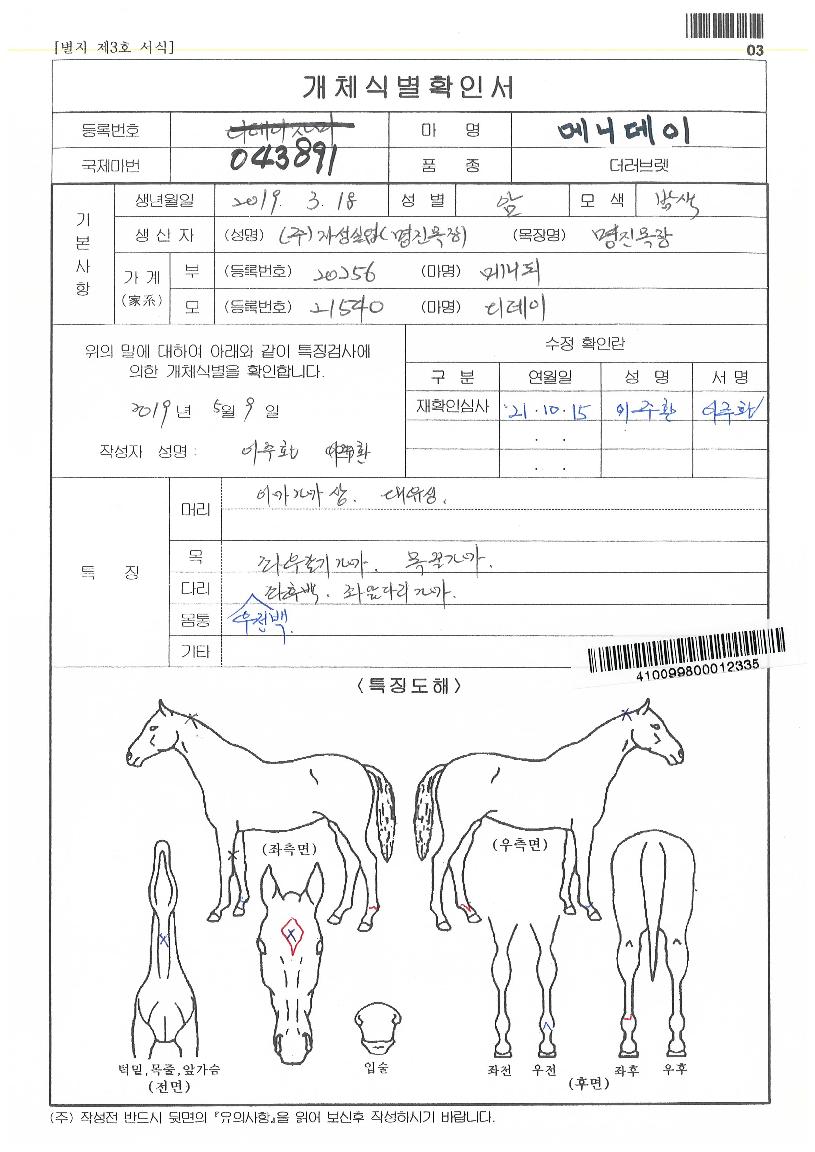 [별지 제3호 서식]
03
개체식별확인서
등록번호 마 명 메니데이
국제마번 043891 품 종 더러브렛
기본사항
생년월일 2019. 3. 18 성 별 암 모 색 밤색
생 산 자 (성명) (주)자성실업(명진목장) (목장명) 명진목장
가 계 (家系)
부 (등록번호) 20256 (마명) 메니피
모 (등록번호) 21540 (마명) 디데이
위의 말에 대하여 아래와 같이 특징검사에
의한 개체식별을 확인합니다.
2019년 5월 9일
작성자 성명 : 이주환 이주환
수정 확인란
구 분 연월일 성 명 서 명
재확인심사 '21.10.15 이주환 이주환
. .
. .
특 징
머리 이마가마 상. 대유성.
목 좌우찰기가마. 목골가마.
다리 좌후백. 좌앞다리가마.
몸통 우전백.
기타
410099800012335
<특징도해>
(좌측면) (우측면)
턱밑,목줄,앞가슴
(전면)
입술
좌전 우전 좌후 우후
(후면)
(주) 작성전 반드시 뒷면의 『유의사항』을 읽어 보신후 작성하시기 바랍니다.